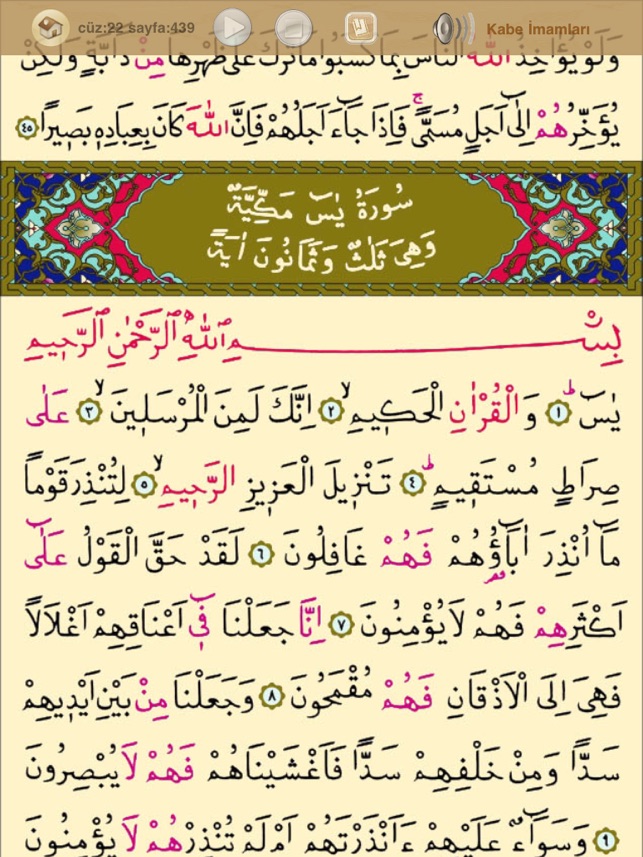 cüz:22 sayfa:439 Kabe İmamları
وَلَوْ يُؤَاخِذُ اللّٰهُ النَّاسَ بِمَا كَسَبُوا مَا تَرَكَ عَلٰى ظَهْرِهَا مِنْ دَٓابَّةٍ وَلٰكِنْ
يُؤَخِّرُهُمْ اِلٰٓى اَجَلٍ مُسَمًّىۚ فَاِذَا جَٓاءَ اَجَلُهُمْ فَاِنَّ اللّٰهَ كَانَ بِعِبَادِه۪ بَص۪يرًا ﴿٤٥﴾
سُورَةُ يٰسٓ مَكِّيَّةٌ
وَهِيَ ثَلٰثٌ وَثَمَانُونَ اٰيَةً
بِسْمِ اللّٰهِ الرَّحْمٰنِ الرَّح۪يمِ
يٰسٓۜ ﴿١﴾ وَالْقُرْاٰنِ الْحَك۪يمِۙ ﴿٢﴾ اِنَّكَ لَمِنَ الْمُرْسَل۪ينَۙ ﴿٣﴾ عَلٰى
صِرَاطٍ مُسْتَق۪يمٍۜ ﴿٤﴾ تَنْز۪يلَ الْعَز۪يزِ الرَّح۪يمِۙ ﴿٥﴾ لِتُنْذِرَ قَوْمًا
مَٓا اُنْذِرَ اٰبَٓاؤُ۬هُمْ فَهُمْ غَافِلُونَ ﴿٦﴾ لَقَدْ حَقَّ الْقَوْلُ عَلٰٓى
اَكْثَرِهِمْ فَهُمْ لَا يُؤْمِنُونَ ﴿٧﴾ اِنَّا جَعَلْنَا ف۪ٓي اَعْنَاقِهِمْ اَغْلَالًا
فَهِيَ اِلَى الْاَذْقَانِ فَهُمْ مُقْمَحُونَ ﴿٨﴾ وَجَعَلْنَا مِنْ بَيْنِ اَيْد۪يهِمْ
سَدًّا وَمِنْ خَلْفِهِمْ سَدًّا فَاَغْشَيْنَاهُمْ فَهُمْ لَا يُبْصِرُونَ
﴿٩﴾ وَسَوَٓاءٌ عَلَيْهِمْ ءَاَنْذَرْتَهُمْ اَمْ لَمْ تُنْذِرْهُمْ لَا يُؤْمِنُونَ